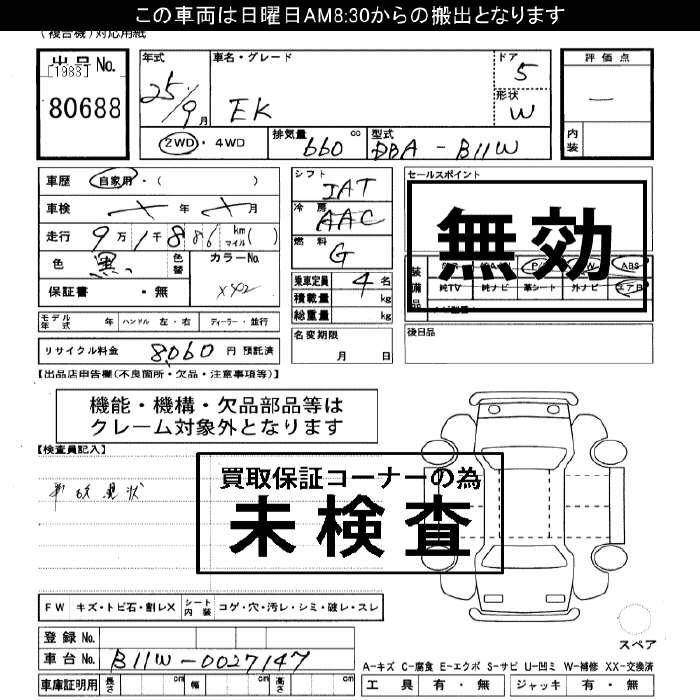 この車両は日曜日AM8:30からの搬出となります
(複合機)対応用紙
出品No.
[1983]
80688
年式
25/9月
車名・グレード
EK
ドア
5
形状
W
評価点
—
内装
2WD・4WD
排気量 660 cc
型式 DBA-B11W
車歴 自家用・( )
車検 年 月
走行 9万1千886 km(マイル)
色 黒
色替
カラーNo.
X42
保証書 ・無
シフト
IAT
冷房
AAC
燃料
G
乗車定員 4名
積載量 kg
総重量 kg
セールスポイント
無効
装備品
ABS
純TV
純ナビ
革シート
外ナビ
エアB
モデル年式 年 ハンドル 左・右 ディーラー・並行
名変期限
月 日
後日品
リサイクル料金 8,060 円 預託済
【出品店申告欄(不良箇所・欠品・注意事項等)】
機能・機構・欠品部品等は
クレーム対象外となります
【検査員記入】
事故現状
買取保証コーナーの為
未検査
FW キズ・トビ石・割レX シート内装 コゲ・穴・汚レ・シミ・破レ・スレ
スペア
登録No.
車台No. B11W-0027147
A-キズ C-腐食 E-エクボ S-サビ U-凹ミ W-補修 XX-交換済
車庫証明用 長さ cm 幅 cm 高さ cm
工具 有・無 ジャッキ 有・無